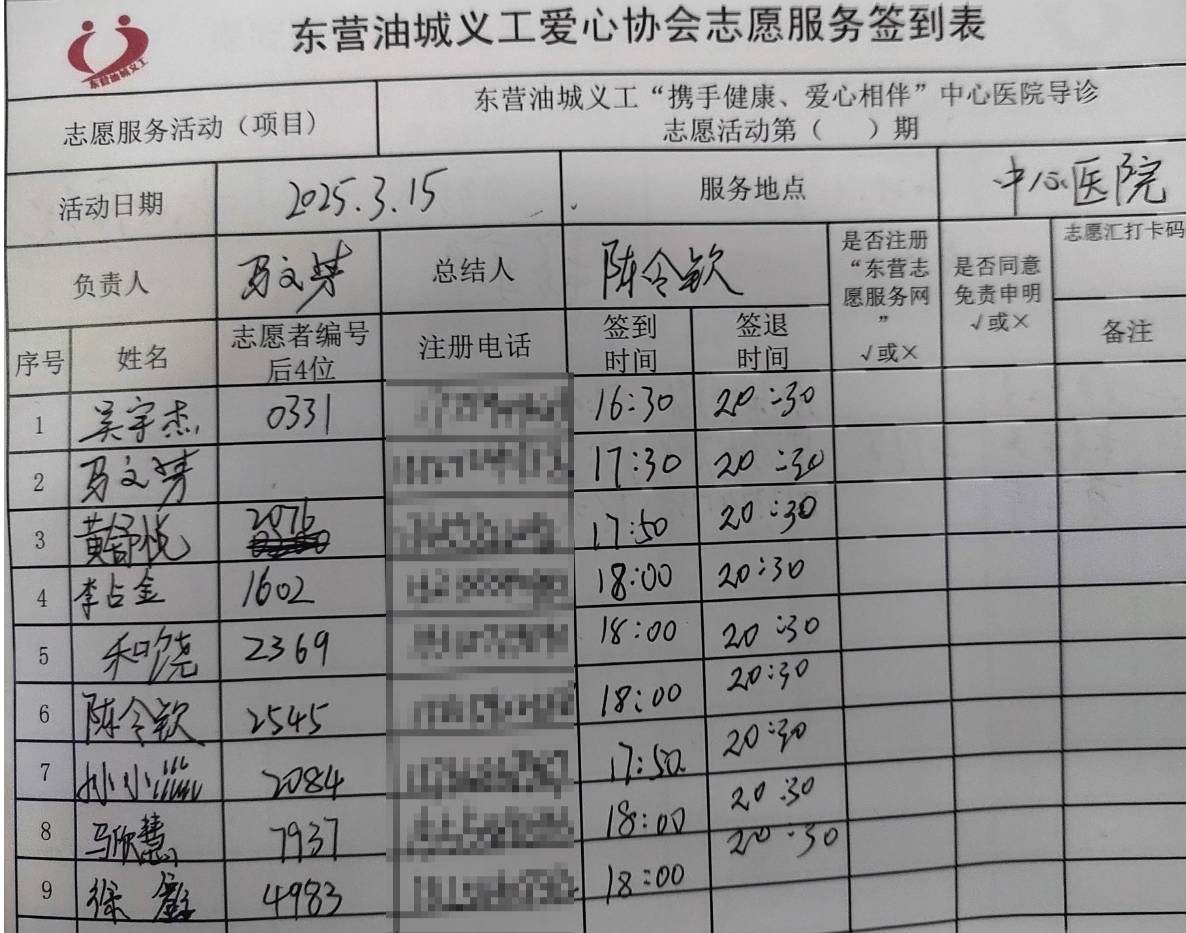 东营油城义工爱心协会志愿服务签到表
东营油城义工
志愿服务活动（项目）
东营油城义工“携手健康、爱心相伴”中心医院导诊
志愿活动第（ ）期
活动日期 2025.3.15 服务地点 中心医院
负责人 马文芳 总结人 陈令钦
是否注册
“东营志
愿服务网
”
√或×
是否同意
免责申明
√或×
志愿汇打卡码
备注
序号 姓名 志愿者编号
后4位
注册电话
签到
时间
签退
时间
1 吴宇杰 0331 16:30 20:30
2 马文芳 17:30 20:30
3 黄舒悦 2076 17:50 20:30
4 李占金 1602 18:00 20:30
5 2369 18:00 20:30
6 陈令钦 2545 18:00 20:30
7 孙小 2084 17:50 20:30
8 马欣慧 7937 18:00 20:30
9 徐 4983 18:00 20:30